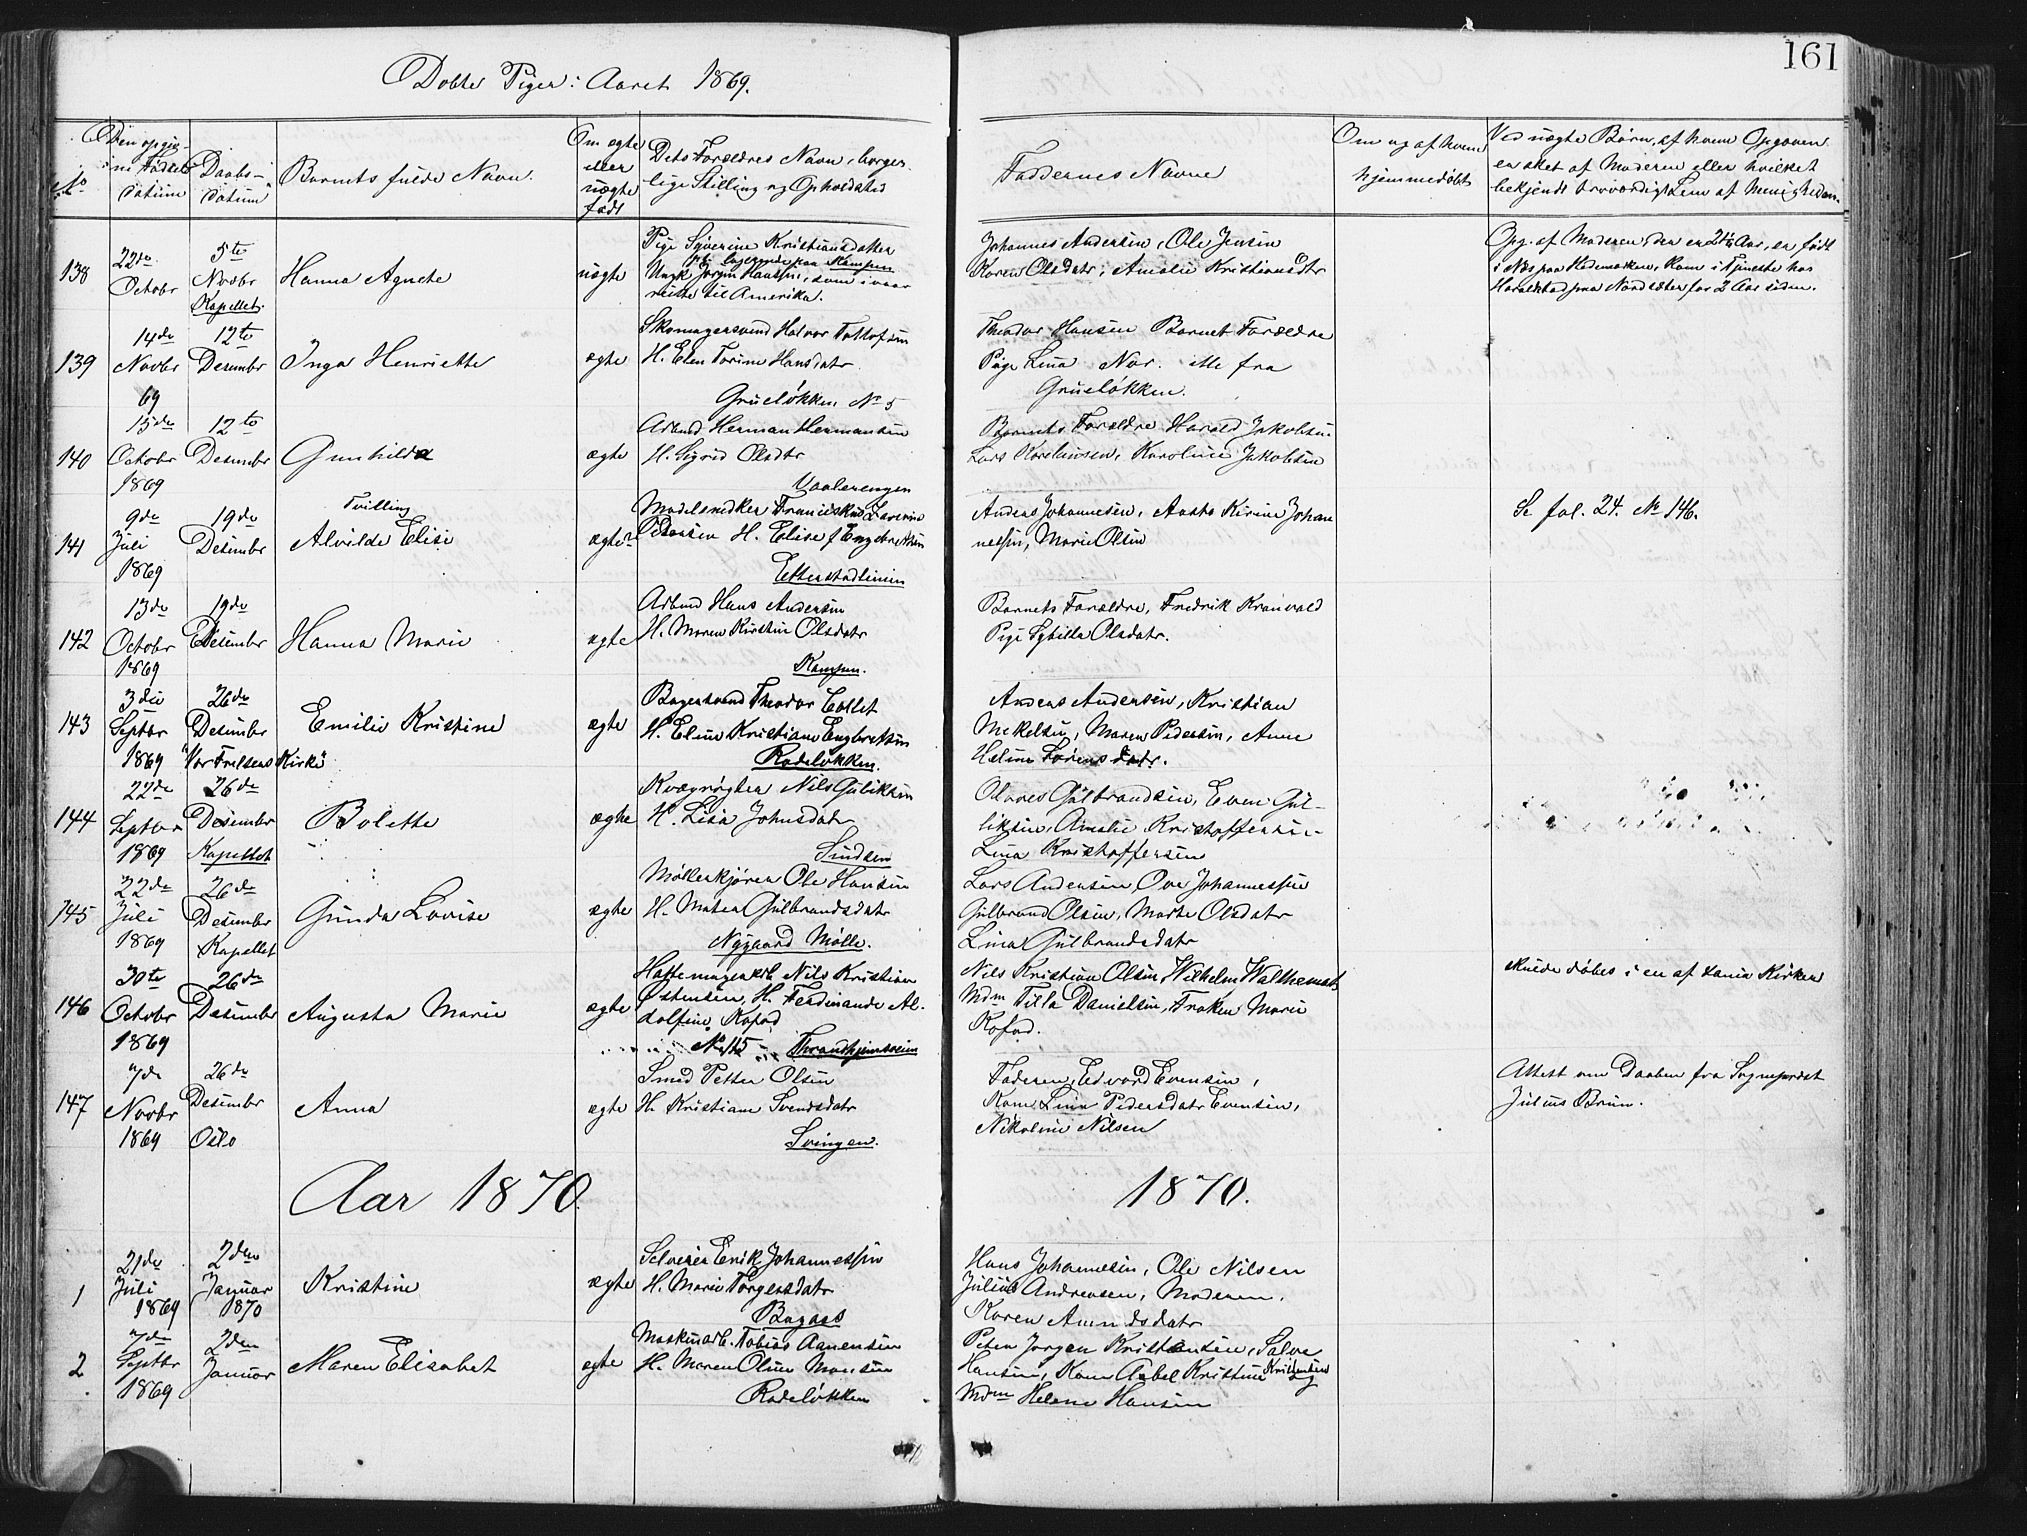 161
Døbte Piger i Aaret 1869.
No
Den opgiv-
ne Fødsels
Datum
Daabs-
Datum
Barnets fulde Navn
Om ægte
eller
uægte
født
Dets Forældres Navn, borger
lige Stilling og Opholdsted
Faddernes Navne
Om og af hvem
hjemmedøbt
Ved uægte Børn, af hvem Opgaven
er sket af Moderen eller hvilket
bekjendt troværdigt Lem af Menigheden.
138
22de
Octobr
5te
Novbr
Kapellet
Hanna Agnete
uægte
Pige Syverine Kristiansdatter
logerende paa Kampen
Ungk Jørgen Hansen, som i vaar
reiste til Amerika.
Johannes Andersen, Ole Jensen
Karen Olsdatr, Amalie Kristiansdtr
Opg. af Moderen, der er 24½ Aar, er født
i Næs paa Hedemarken, kom i Tjeneste hos
Haralstad paa Nordsæter for 2 Aar siden.
139
14de
Novbr
69
12te
Desembr
Inga Henriette
ægte
Skomagersvend Halvor Tollofsen
H. Elen Torine Hansdatr
Grueløkken No 5
Theodor Hansen Barnet Forældre
Pige Lina Nor. alle fra
Grueløkken.
140
15de
Octobr
1869
12te
Desembr
Gunhilda
ægte
Arbmd Herman Hermansen
H. Sigrid Olsdtr
Vaalerengen
Barnets Forældre Harald Jakobsen
Lars Karelinsen, Karoline Jakobsen
141
9de
Juli
1869
19de
Desembr
Tvilling
Alvilde Elise
ægte
Modelsnedker Franciskus Zaverius
Odersien H. Elise f Engebrethsen
Etterstadlinien
Anders Johannesen, Aasta Kirine Johan
nessen, Marie Olsen
Se fol. 24. No 146.
142
13de
Octobr
1869
19de
Desembr
Hanna Marie
ægte
Arbmd Hans Andersen
H. Maren Kirstine Olsdatr
Kampen.
Barnets Forældre, Fredrik Kranvold
Pige Sybilla Olsdatr.
143
3die
Septbr
1869
26de
Desembr
Vor Frelsers Kirke
Emilie Kristine
ægte
Bagersvend Theodor Collet
H. Eline Kristiane Engbretsen
Rodeløkken.
Anders Andersen, Kristian
Mekelsen, Maren Pedersen, Anne
Heline Sørensdatr.
144
22de
Septbr
1869
26de
Desember
Kapellet
Bolette
ægte
Kvægrøgter Nils Guliksen
H. Lisa Johnsdatr
Sindsen
Olaves Gulbrandsen, Even Gul-
liksen, Amalie Kristoffersen-
Lina Kristoffersen
145
22de
Juli
1869
26de
Desember
Kapellet
Gunda Lovise
ægte
Møllerkjører Ole Hansen
H. Matea Gulbrandsdatr
Nygaard Mølle.
Lars Andersen, Ove Johannessen
Gulbrand Olsen, Marte Olsdatr
Lina Gulbrandsdatr
146
30te
Octobr
1869
26de
Desembr
Augusta Marie
ægte
Hattemagerarb Nils Kristian
Østensen, H. Ferdinande Al-
dolfine Kofod
No 115 Throndhjemsveien
Nils Kristian Olsen, Wilhelm Walthemath
Mdm Tilla Danielsen, Frøken Marie
Kofod.
skulde døbes i en af Stadens Kirker
147
7de
Novbr
1869
26de
Desembr
Oslo
Anna
ægte
Smed Petter Olsen
H. Kristiane Svendsdatr
Svingen.
Faderen, Edvard Evensen,
Kone Lina Pedersdatr Evensen,
Nikoline Nilsen
Attest om Daaben fra Sognepræst
Julius Bruun.
Aar 1870
1870.
1
21de
Juli
1869
2den
Januar
1870
Kristine
ægte
Selveier Erik Johannessen
H. Marie Torgersdatr
Bagaas
Hans Johannesen, Ole Nilsen
Julius Andreasen, Moderen.
Karen Amundsdatr
2
7de
Septbr
1869
2den
Januar
Maren Elisabet
ægte
Maskinarb. Tobias Aanensen
H. Maren Oline Monsen
Rodeløkken
Peter Jørgen Kristensen, Salve
Hansen, Kone Aabel Kristine Kristensen
Mdm Helene Hansen